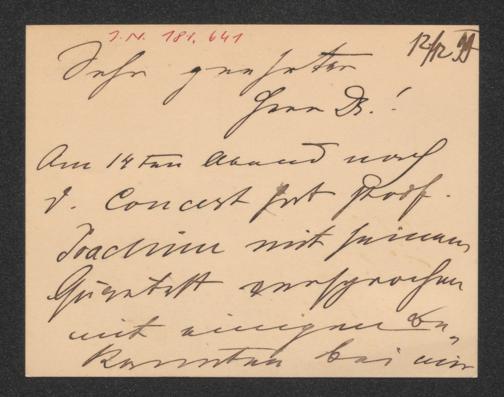 J.N. 181.641
12/12 99
Sehr geehrter
Herr Dr.!
Am 14ten Abend nach
d. Concert hat Prof.
Joachim mit seinem
Quartett versprochen
mit einigen Be„
kannten bei mir